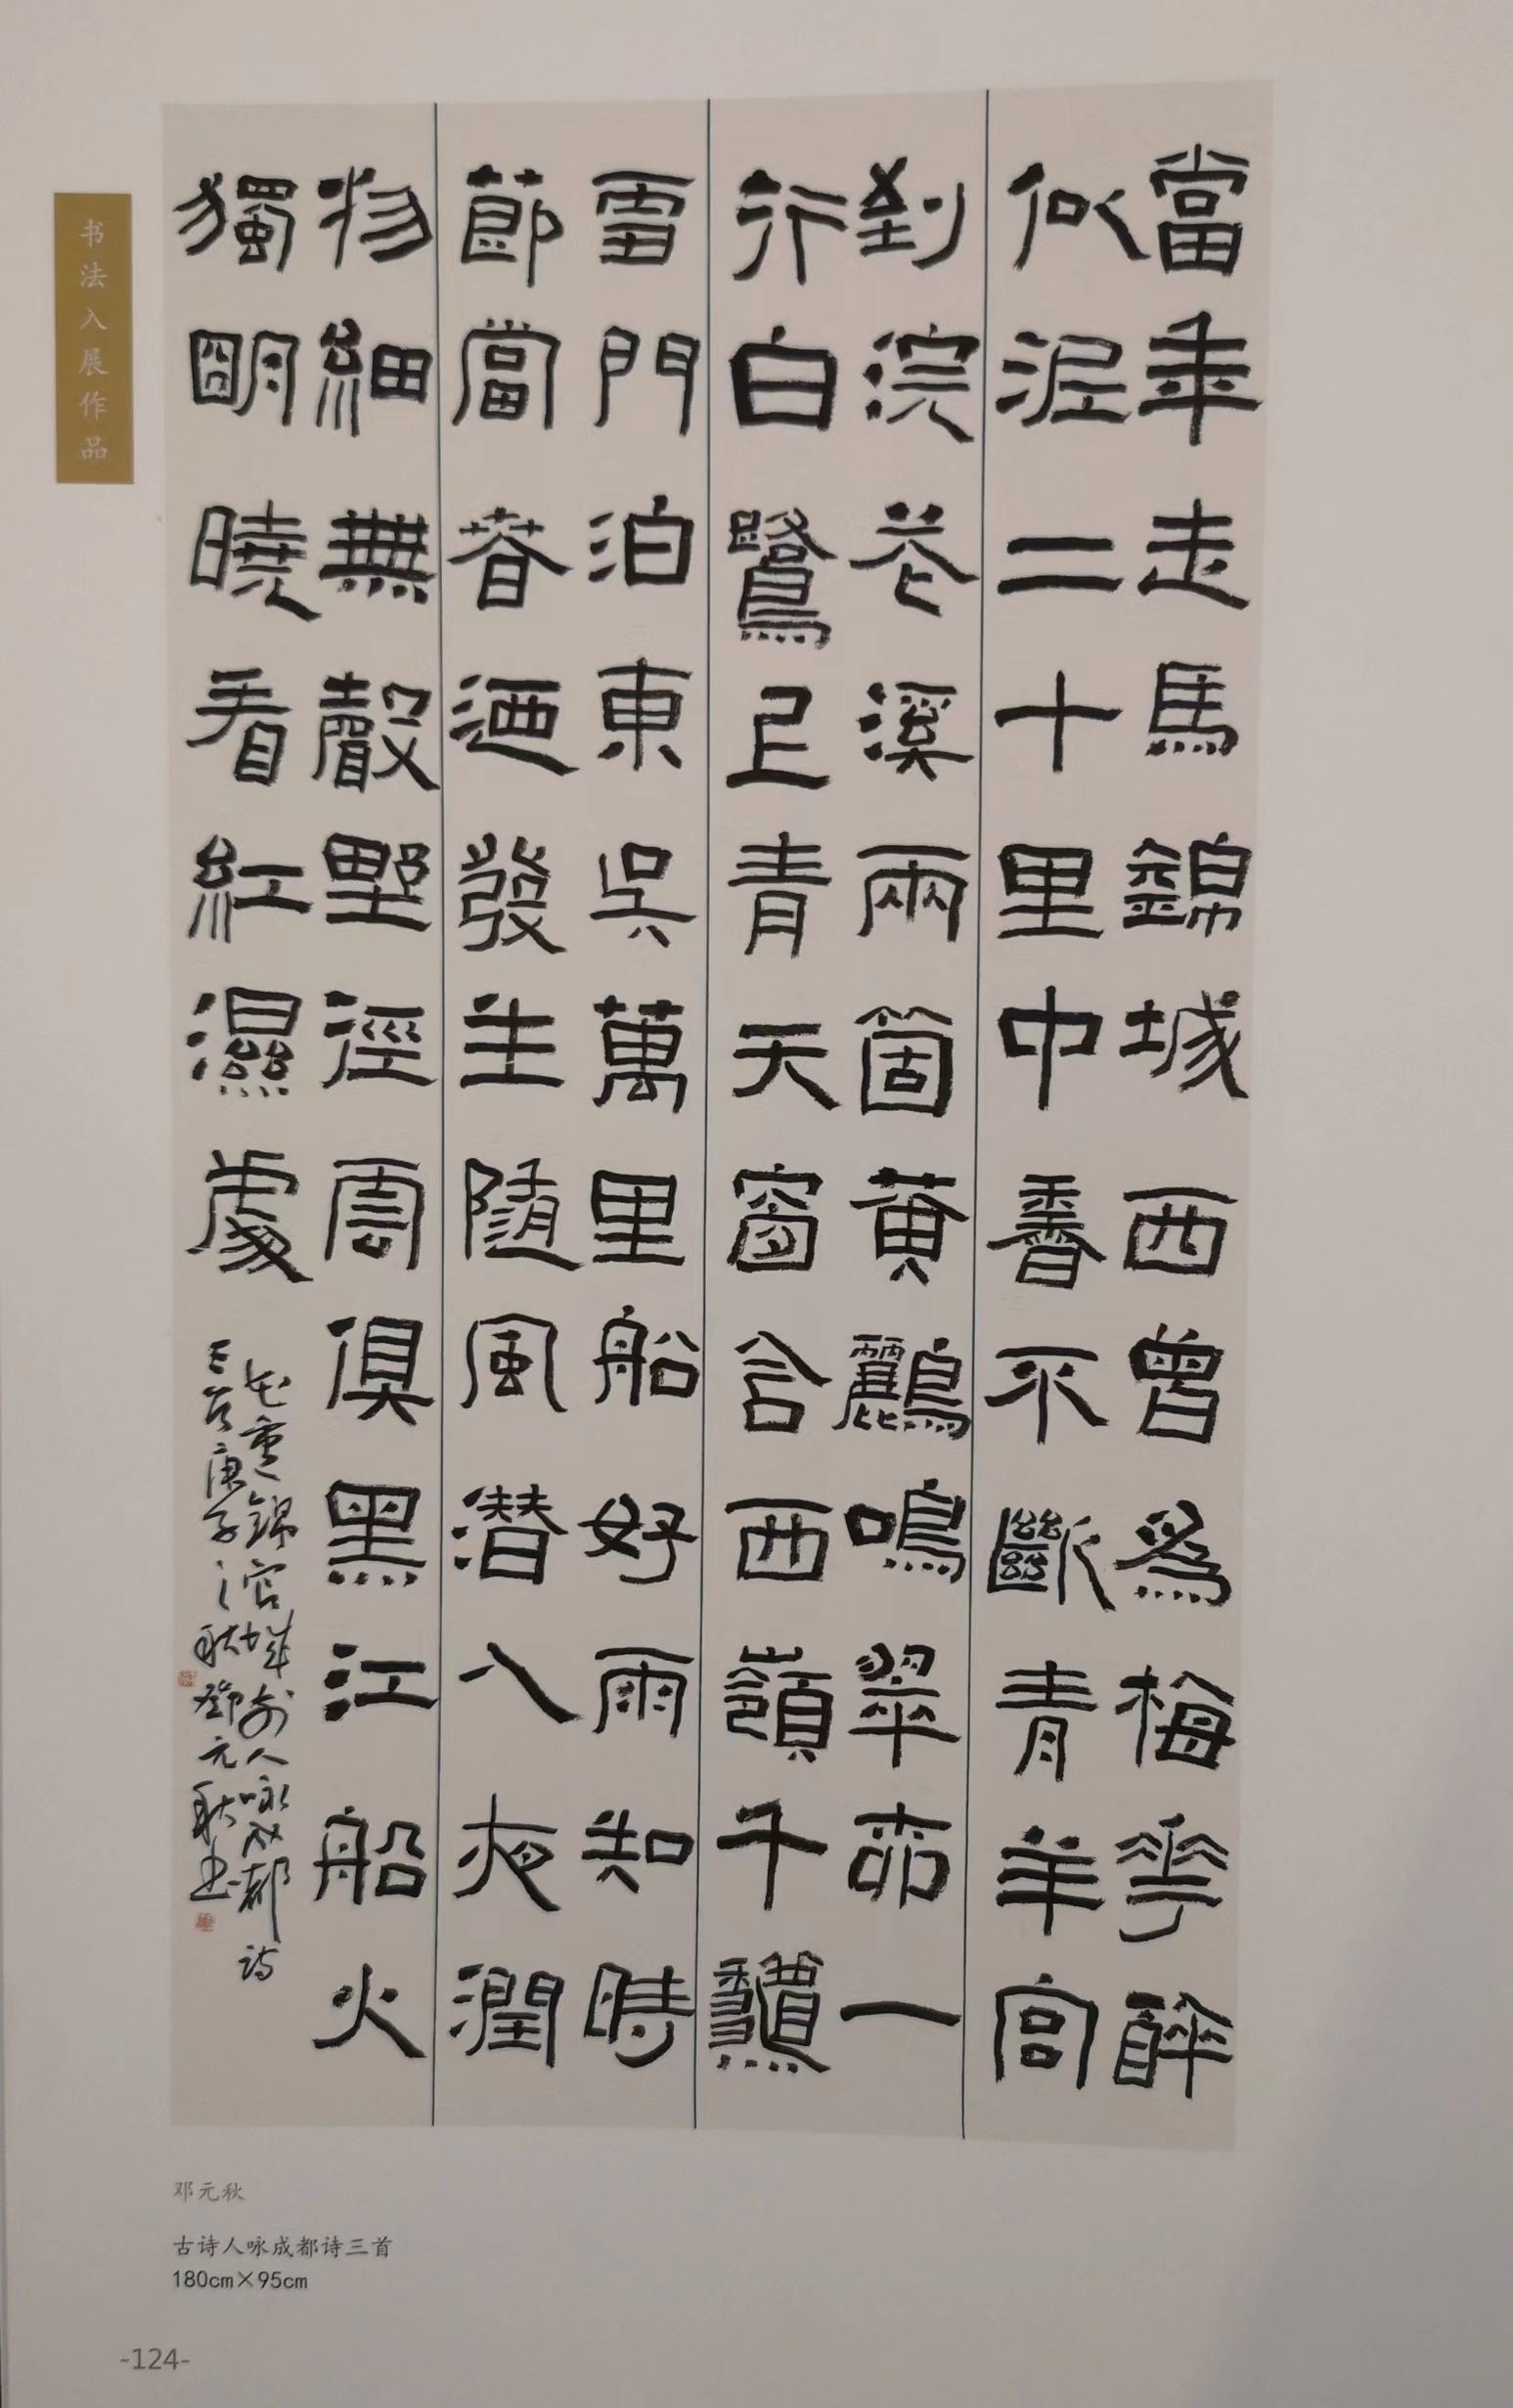 书法入展作品
當年走馬錦城西曾爲梅花醉
似泥二十里中香不斷青羊宮
到浣花溪兩箇黃鸝鳴翠柳一
行白鷺上青天窗含西嶺千龝
雪門泊東吳萬里船好雨知時
節當春迺發生隨風潛入夜潤
物細無聲野徑雲俱黑江船火
獨明曉看紅濕處
花重錦官城前人咏成都詩
三首庚子之秋鄧元秋書
邓元秋
古诗人咏成都诗三首
180cm×95cm
-124-